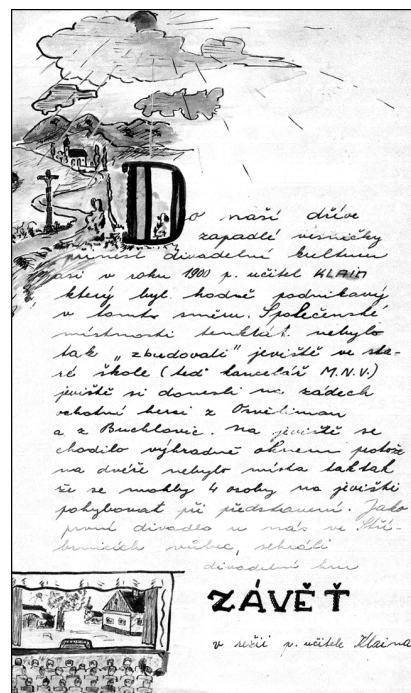 Do naší dříve
zapadlé vesničky
přinesl divadelní kulturu
asi v roku 1900 p. učitel KLAIN
který byl hodně podnikavý
v tomto směru. Společenské
místnosti tenkrát nebylo
tak "zbudovali" jeviště ve sta-
ré škole (teď kancelář M.N.V.)
jeviště si donesli na zádech
ochotní herci z Osvětiman
a z Buchlovic. Na jeviště se
chodilo výhradně oknem protože
na dveře nebylo místa taktak
že se mohly 4 osoby na jevišti
pohybovat při představení. Jako
první divadlo u nás ve Stří-
brnicích vůbec, sehráli
divadelní hru
ZÁVĚŤ
v režii p. učitele Klaina